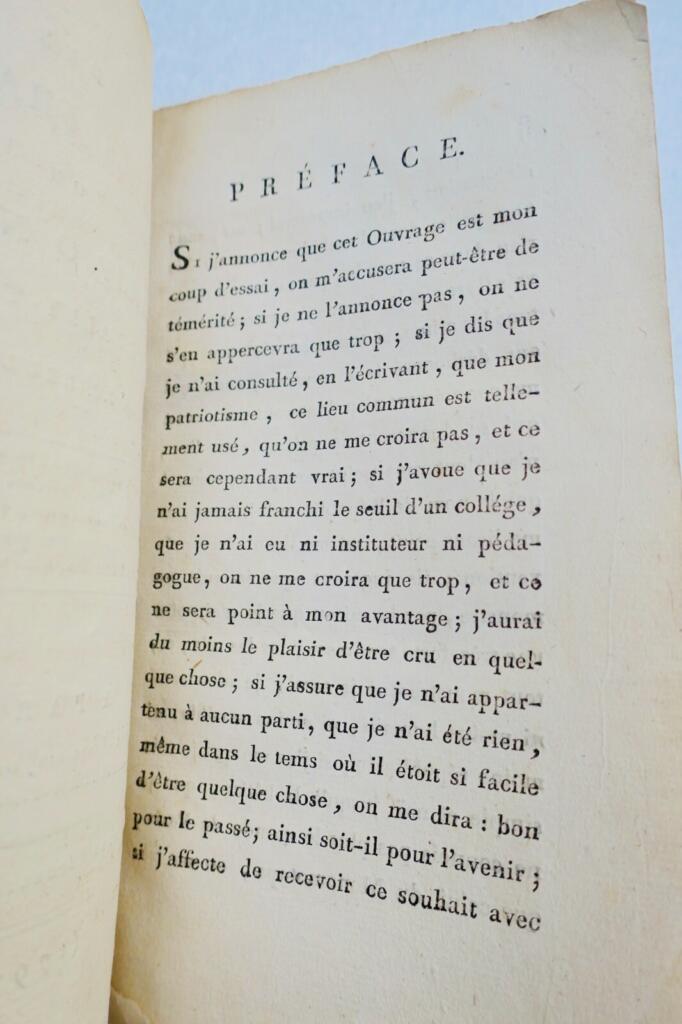 PRÉFACE.
SI j'annonce que cet Ouvrage est mon
coup d'essai, on m'accusera peut-être de
témérité; si je ne l'annonce pas, on ne
s'en appercevra que trop; si je dis que
je n'ai consulté, en l'écrivant, que mon
patriotisme, ce lieu commun est telle-
ment usé, qu'on ne me croira pas, et ce
sera cependant vrai; si j'avoue que je
n'ai jamais franchi le seuil d'un collége,
que je n'ai eu ni instituteur ni péda-
gogue, on ne me croira que trop, et ce
ne sera point à mon avantage; j'aurai
du moins le plaisir d'être cru en quel-
que chose; si j'assure que je n'ai appar-
tenu à aucun parti, que je n'ai été rien,
même dans le tems où il étoit si facile
d'être quelque chose, on me dira: bon
pour le passé; ainsi soit-il pour l'avenir;
si j'affecte de recevoir ce souhait avec